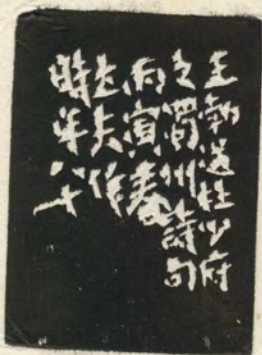 王勃送杜少府
之蜀州詩句
丙寅春
夫作
時年八十